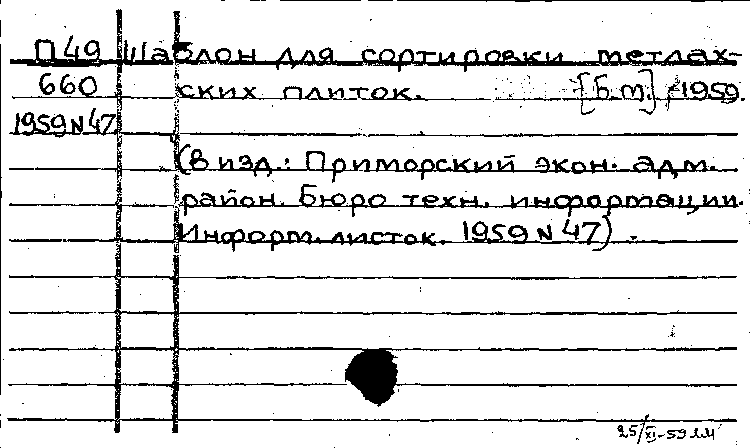 П49 Шаблон для сортировки метлах-
660 ских плиток. [Б.м.], 1959.
1959 N 47
(В изд.: Приморский экон. адм.
район. Бюро техн. информации.
Информ. листок. 1959 N 47).
25/XI-59